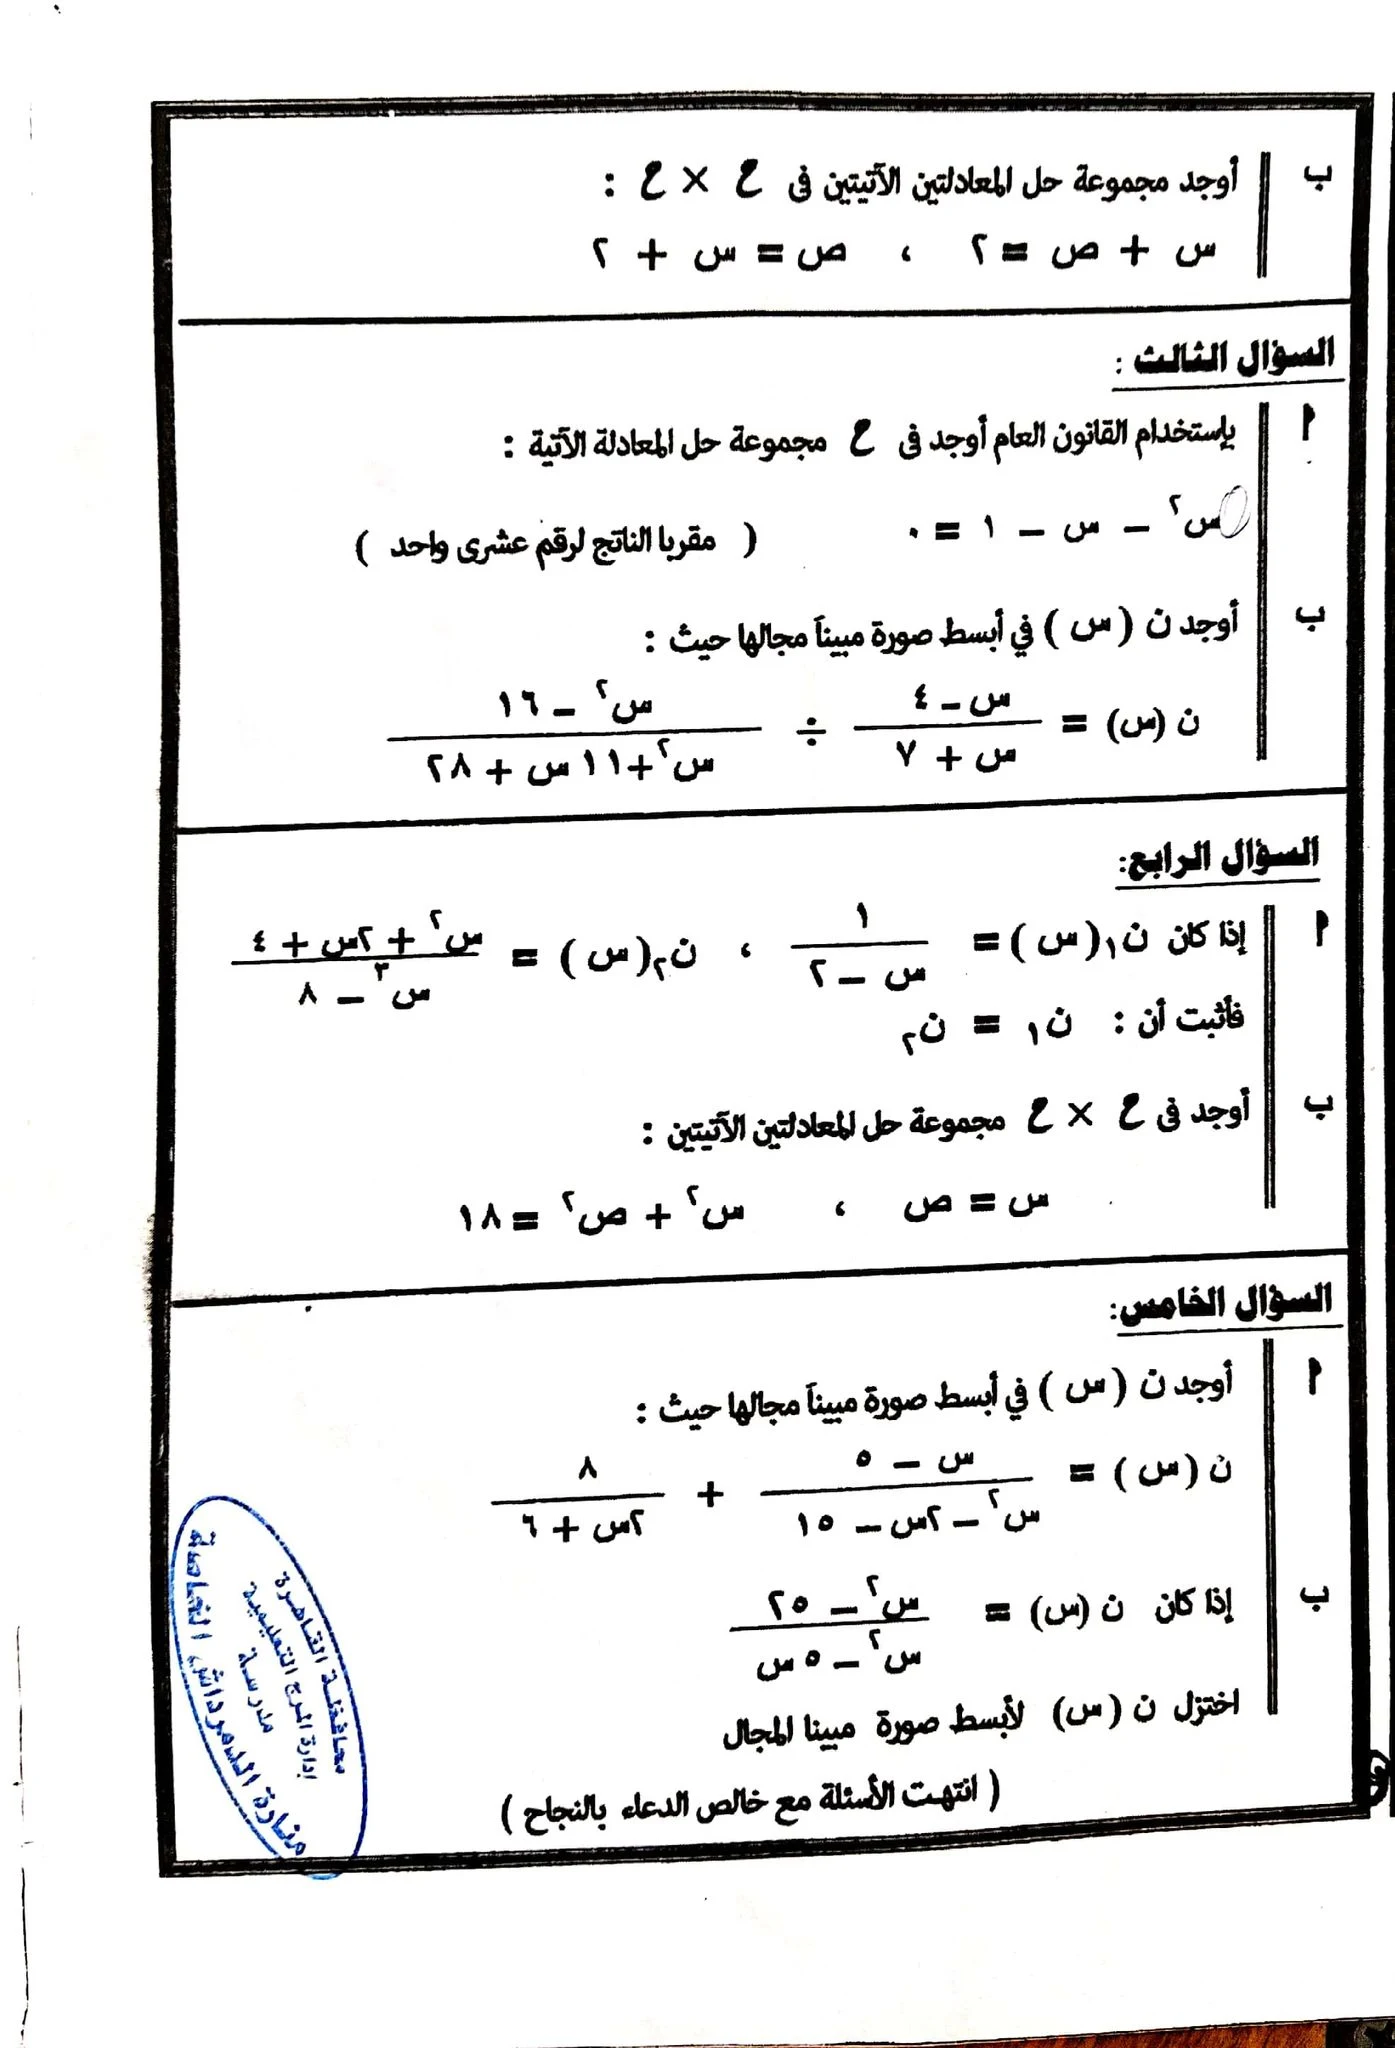 ب أوجد مجموعة حل المعادلتين الآتيتين فى ح × ح :
س + ص = ٢ ، ص = س + ٢
السؤال الثالث :
أ بإستخدام القانون العام أوجد فى ح مجموعة حل المعادلة الآتية :
س٢ – س – ١ = ٠ ( مقربا الناتج لرقم عشرى واحد )
ب أوجد ن ( س ) في أبسط صورة مبيناً مجالها حيث :
س – ٤ س٢ – ١٦
ن (س) = ÷
س + ٧ س٢ + ١١ س + ٢٨
السؤال الرابع:
١ س٢ + ٢س + ٤
أ إذا كان ن١( س ) = ، ن٢( س ) =
س – ٢ س٣ – ٨
فأثبت أن : ن١ = ن٢
ب أوجد فى ح × ح مجموعة حل المعادلتين الآتيتين :
س = ص ، س٢ + ص٢ = ١٨
السؤال الخامس:
أ أوجد ن ( س ) في أبسط صورة مبيناً مجالها حيث :
س – ٥ ٨
ن ( س ) = +
س٢ – ٢س – ١٥ ٢س + ٦
س٢ – ٢٥
ب إذا كان ن (س) =
س٢ – ٥ س
اختزل ن ( س) لأبسط صورة مبينا المجال
( انتهت الأسئلة مع خالص الدعاء بالنجاح )
محافظة القاهرة
إدارة المرج التعليمية
مدرسة
منارة الدمرداش الخاصة